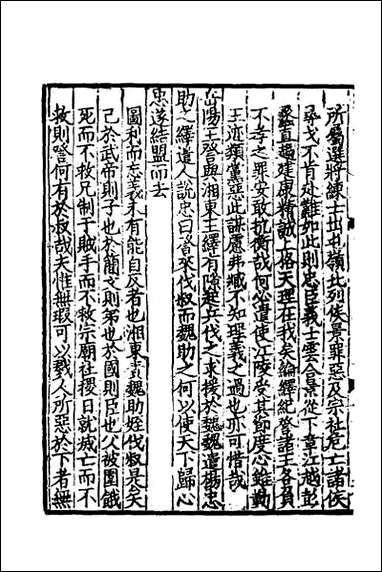 所屬選將練士出屯嶺北列侯景罪惡及宗社危亡諸侯
尋戈不肯赴難如此則忠臣義士雲合景從下章江越彭
蠡直趨建康精誠上格天理在我矣論繹紀詧諸王各負
不孝之罪安敢抗衡哉何必遣使江陵受其節度心雖勤
王迹類黨惡此謀慮弗臧不知理義之過也亦可惜哉
岳陽王詧與湘東王繹有隙起兵伐之求援於魏魏遣楊忠
助之繹遣人說忠曰詧來伐叔而魏助之何以使天下歸心
忠遂結盟而去
圖利而忘義未有能自反者也湘東責魏助姪伐叔是矣
己於武帝則子也於簡文則弟也於國則臣也父被圍餓
死而不救兄制于賊手而不救宗廟社稷日就滅亡而不
救則詧何有於叔哉夫惟無瑕可以戮人所惡於下者無